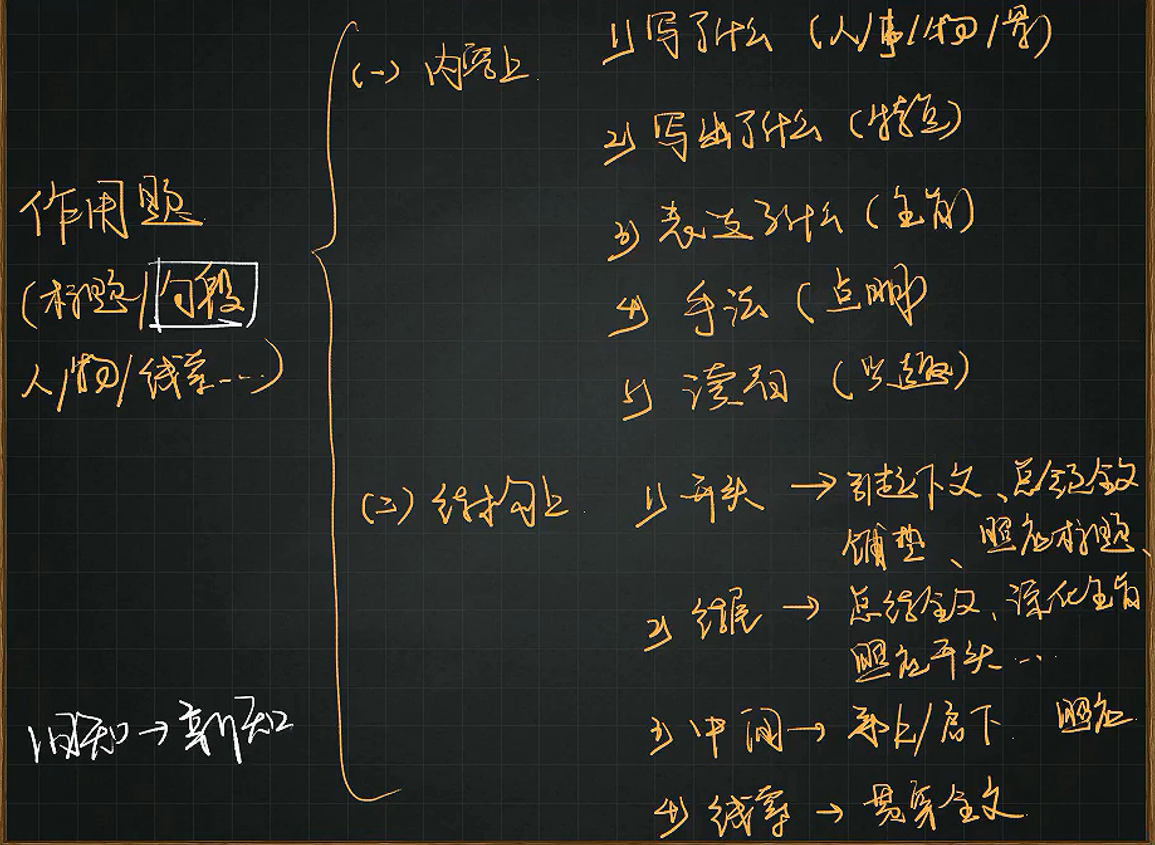 作用题
(标题/句段
人/物/线索...)
旧知→新知
(一) 内容上
1) 写了什么 (人/事/物/景)
2) 写出了什么 (特点)
3) 表达了什么 (主旨)
4) 手法 (点明)
5) 读者 (兴趣)
(二) 结构上
1) 开头 → 引起下文、总领全文
铺垫、照应标题、
2) 结尾 → 总结全文、深化主旨
照应开头...
3) 中间 → 承上/启下 照应
4) 线索 → 贯穿全文